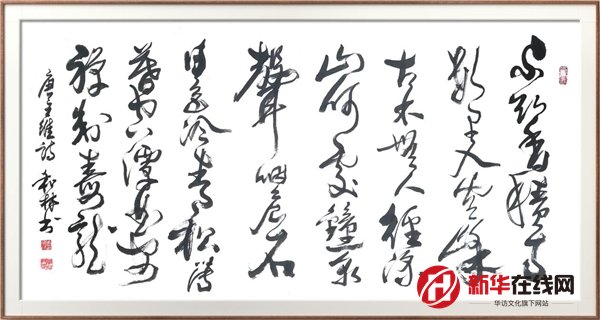 不知香積寺
數里入云峰
古木無人徑深
山何處鐘泉
聲咽危石
日色冷青松薄
暮空潭曲安
禪制毒龍
唐王維詩 林书
新华在线网
华访文化旗下网站